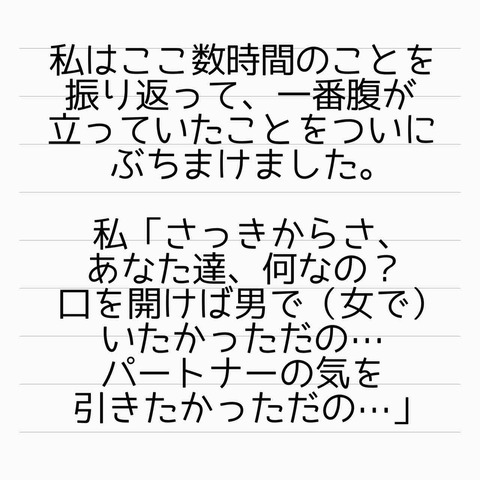 私はここ数時間のことを
振り返って、一番腹が
立っていたことをついに
ぶちまけました。
私「さっきからさ、
あなた達、何なの？
口を開けば男で（女で）
いたかっただの…
パートナーの気を
引きたかっただの…」